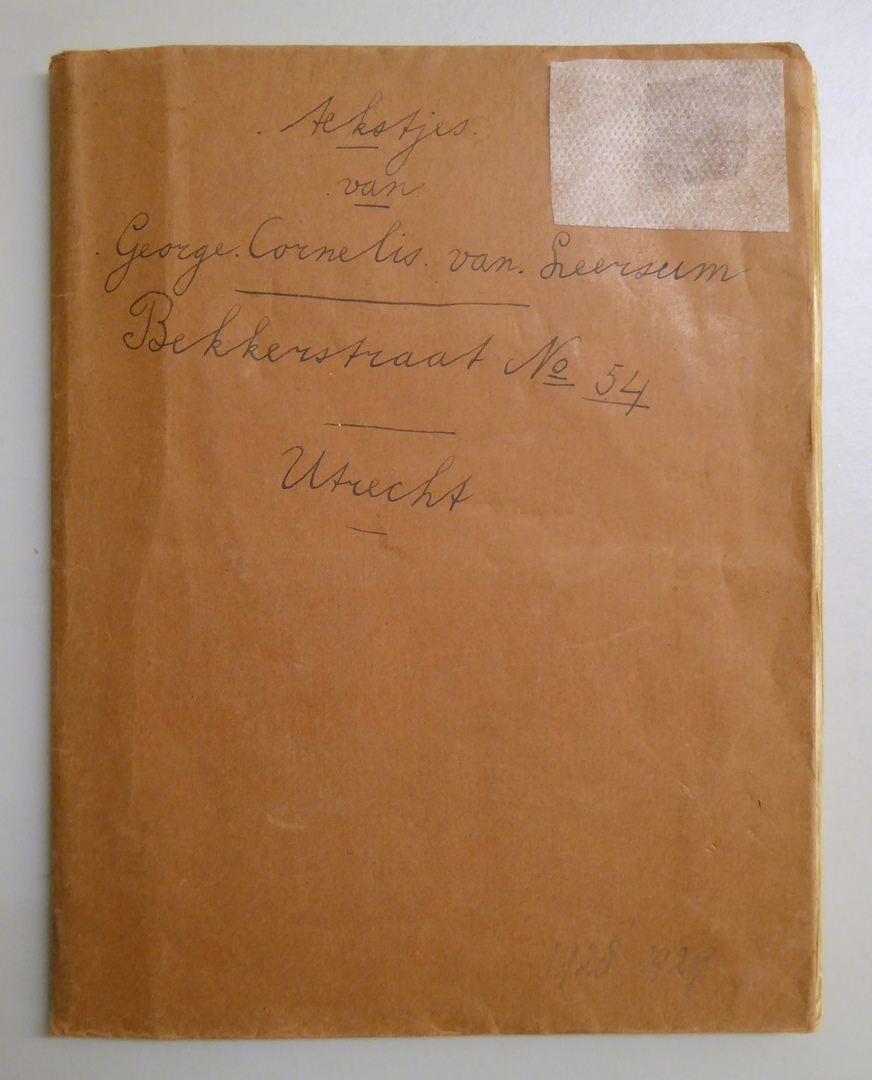 tekstjes.
van.
George. Cornelis. van. Leersum
Bekkerstraat No 54
Utrecht
1928 1929